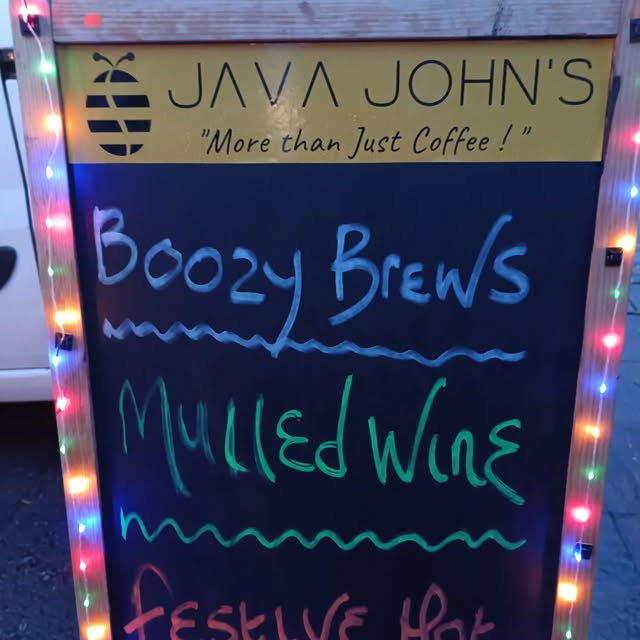 JAVA JOHN'S
"More than Just Coffee!"
Boozy Brews
Mulled Wine
Festive Hot